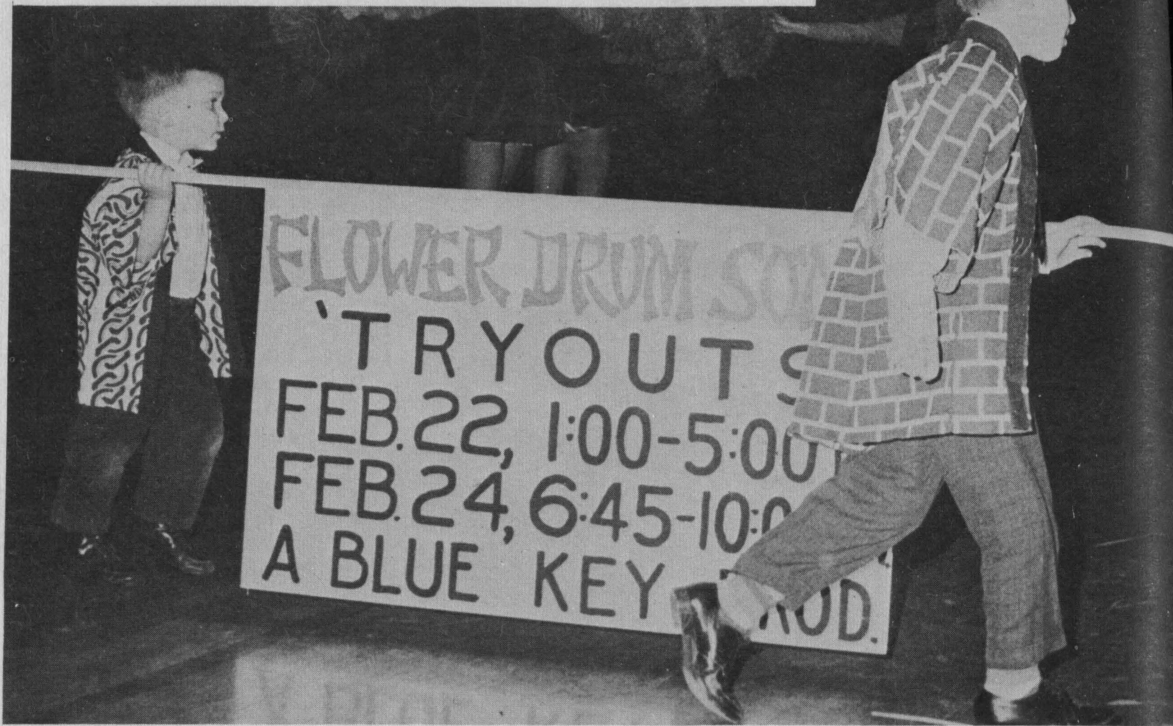 FLOWER DRUM
'TRYOUTS
FEB. 22, 1:00-5:00
FEB. 24, 6:45-10:0
A BLUE KEY PROD.